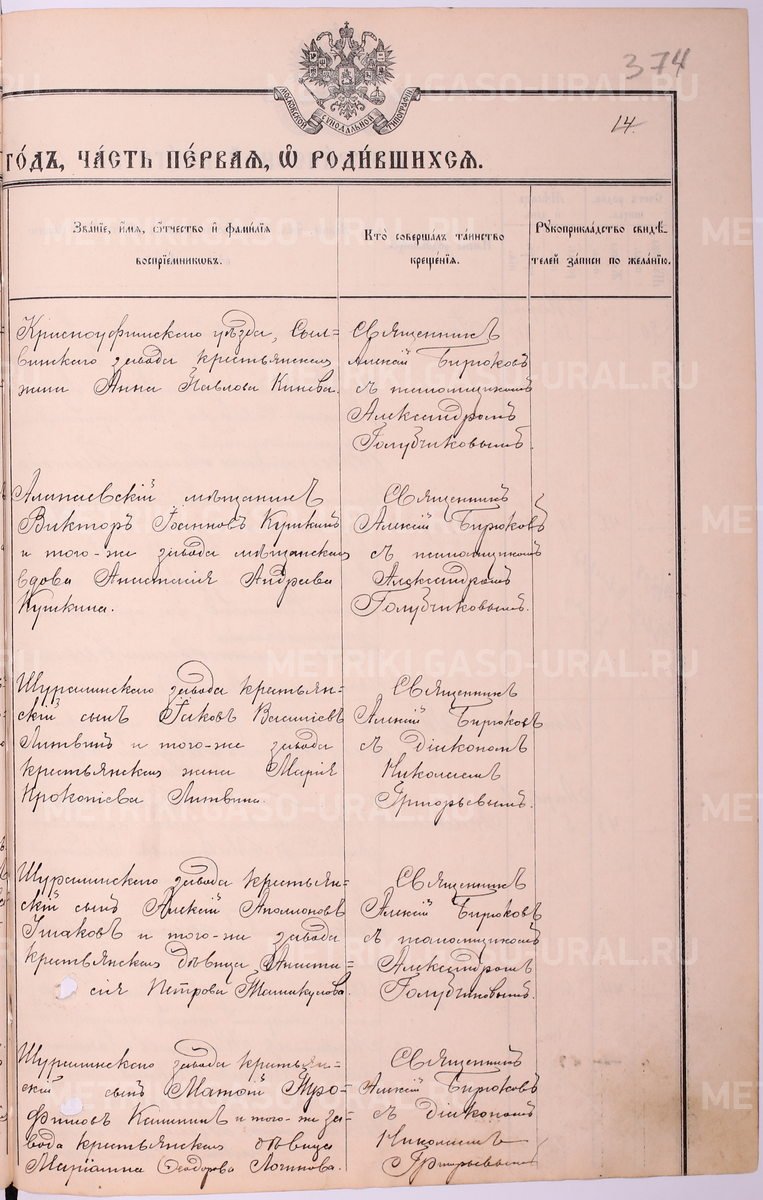 374
14.
МОСКОВСКОЙ СѴНОДАЛЬНОЙ ТИПОГРАФІИ
го́дъ, ча́сть пе́рвая, ѽ роди́вшихся.
Зва́ніе, и́мя, ѻ́тчество и҆ фами́лія
воспріе́мниковъ.
Кто̀ соверша́лъ та́инство
креще́нія.
Рꙋкоприкла́дство свидѣ́-
телей за́писи по жела́нію.
Красноуфимскаго уѣзда, Сыл-
винскаго завода крестьянская
жена Анна Павлова Кинева.
Священникъ
Алексій Бирюковъ
съ псаломщикомъ
Александромъ
Голубчиковымъ.
Алапаевскій мѣщанинъ
Викторъ Іоанновъ Кушкинъ
и того-же завода мѣщанская
вдова Анастасія Андреева
Кушкина.
Священникъ
Алексій Бирюковъ
съ псаломщикомъ
Александромъ
Голубчиковымъ.
Шуралинскаго завода крестьян-
скій сынъ Іаковъ Василіевъ
Литвинъ и того-же завода
крестьянская жена Марія
Прокопіева Литвина.
Священникъ
Алексій Бирюковъ
съ діакономъ
Николаемъ
Григорьевымъ.
Шуралинскаго завода крестьян-
скій сынъ Алексій Аполлоновъ
Ушаковъ и того-же завода
крестьянская дѣвица Анаста-
сія Петрова
Священникъ
Алексій Бирюковъ
съ псаломщикомъ
Александромъ
Голубчиковымъ.
Шуралинскаго завода крестьян-
скій сынъ Матѳій Тро-
фимовъ и того-же за-
вода крестьянская дѣвица
Маріанна Ѳеодорова Логинова.
Священникъ
Алексій Бирюковъ
съ діакономъ
Николаемъ
Григорьевымъ
METRIKI.GASO-URAL.RU